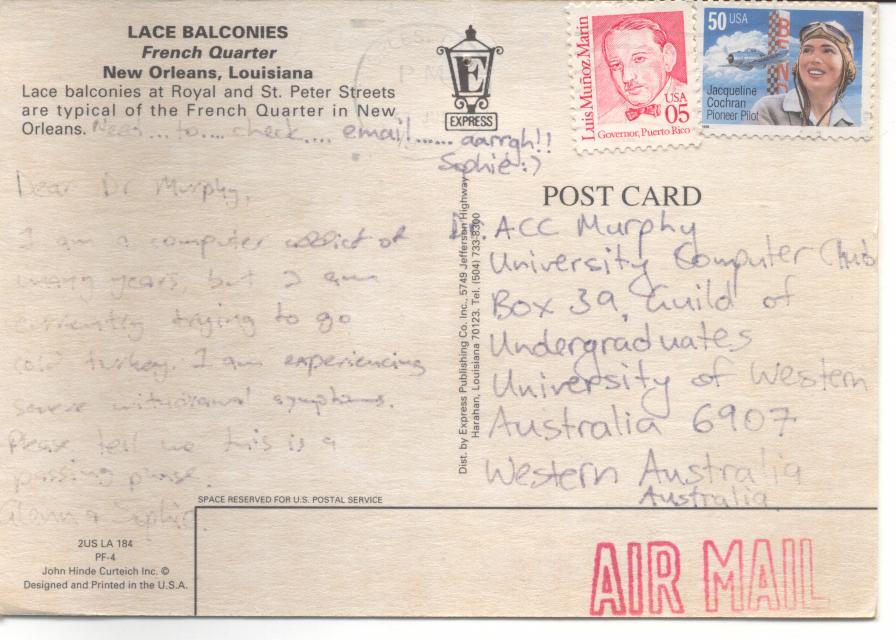 LACE BALCONIES
French Quarter
New Orleans, Louisiana
Lace balconies at Royal and St. Peter Streets
are typical of the French Quarter in New
Orleans.
Need... to.... check.... email...... aarrgh!!
Sophie :)
Dear Dr Murphy,
I am a computer addict of
many years, but I am
currently trying to go
cold turkey. I am experiencing
severe withdrawal symptoms.
Please tell me this is a
passing phase.
Glenn & Sophie.
2US LA 184
PF-4
John Hinde Curteich Inc. ©
Designed and Printed in the U.S.A.
E
EXPRESS
Dist. by Express Publishing Co. Inc., 5749 Jefferson Highway
Harahan, Louisiana 70123. Tel. (504) 733-8300
Luis Muñoz Marín
USA
05
Governor, Puerto Rico
50 USA
Jacqueline
Cochran
Pioneer Pilot
P M
POST CARD
Dr. ACC Murphy
University Computer Club
Box 39, Guild of
Undergraduates
University of Western
Australia 6907
Western Australia
Australia
SPACE RESERVED FOR U.S. POSTAL SERVICE
AIR MAIL